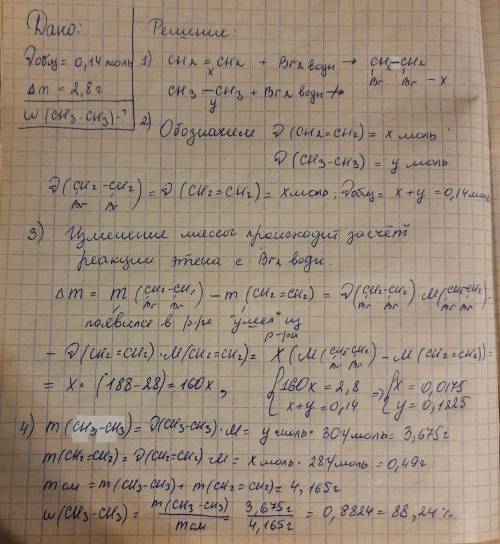 Дано:
Решение:
νобщ = 0,14 моль
Δm = 2,8г
W(CH3-CH3)-?
1) CH2 = CH2 + Br2 водн → CH2-CH2
x
Br Br - x
CH3 - CH3 + Br2 водн ↛
y
2) Обозначим ν(CH2=CH2) = x моль
ν(CH3-CH3) = y моль
ν(CH2-CH2) = ν(CH2=CH2) = x моль; νобщ = x + y = 0,14 моль
Br Br
3) Изменение массы происходит засчёт
реакции этена с Br2 водн.
Δm = m(CH2-CH2) - m(CH2=CH2) = ν(CH2-CH2)·M(CH2-CH2)-
Br Br Br Br Br Br
появился в р-ре "ушёл" из
р-ра
- ν(CH2=CH2)·M(CH2=CH2) = x(M(CH2-CH2) - M(CH2=CH2))=
Br Br
= x·(188-28)=160x, {160x = 2,8 => {x = 0,0175
x+y = 0,14 y = 0,1225
4) m(CH3-CH3) = ν(CH3-CH3)·M = y моль · 30г/моль = 3,675г
m(CH2=CH2) = ν(CH2=CH2)·M = x моль · 28г/моль = 0,49г
mсм = m(CH3-CH3) + m(CH2=CH2) = 4,165г
W(CH3-CH3) = m(CH3-CH3) / mсм = 3,675г / 4,165г = 0,8824 = 88,24%